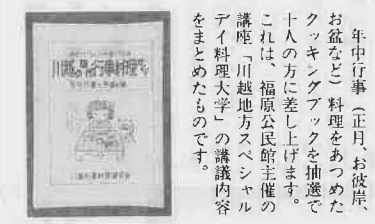 年中行事（正月、お彼岸、
お盆など）料理をあつめた
クッキングブックを抽選で
十人の方に差し上げます。
これは、福原公民館主催の
講座「川越地方スペシャル
デイ料理大学」の講義内容
をまとめたものです。